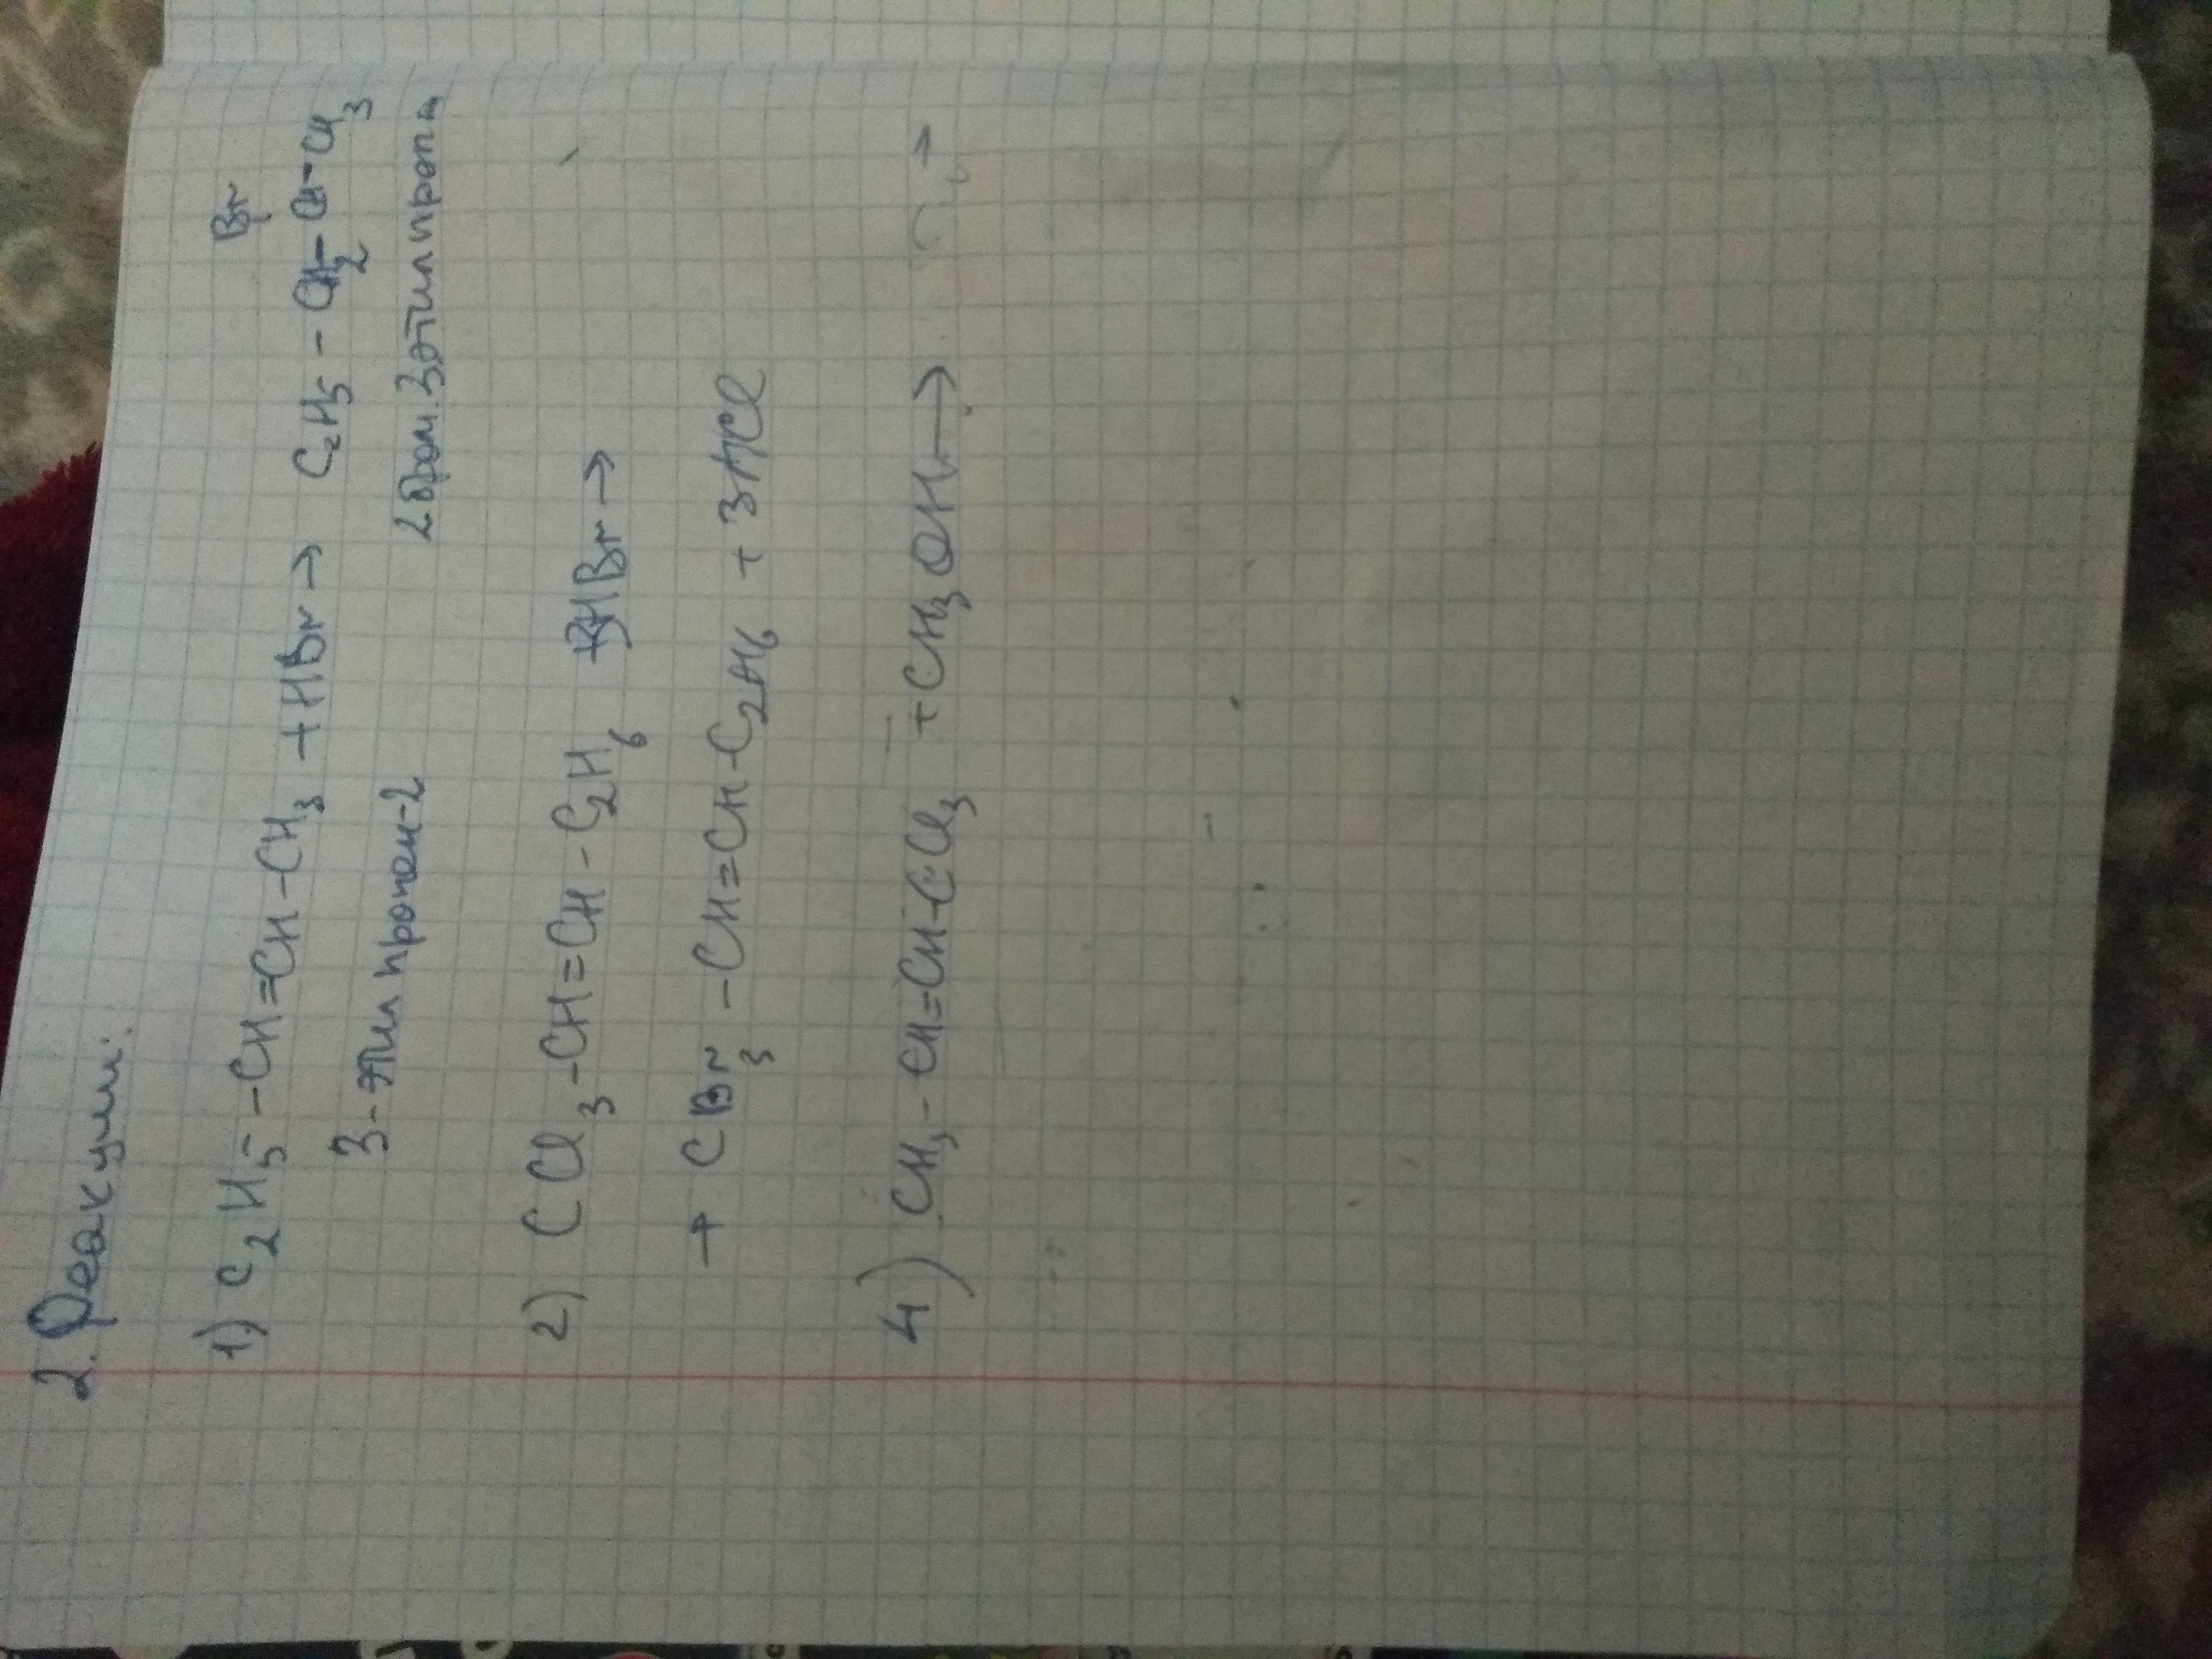 2. Реакции:
Br
1) C2H5-CH=CH-CH3 +HBr→ C2H5-CH2-CH-CH3
3-этил пропен-2 2 бром. 3этилпропан
2) CCl3-CH=CH-C2H6 +3HBr→
→ CBr3-CH=CH-C2H6 + 3HCl
4) CH3-CH=CH-CCl3 +CH3OH→